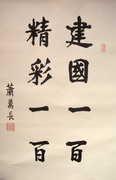 建國一百
精彩一百
蕭萬長